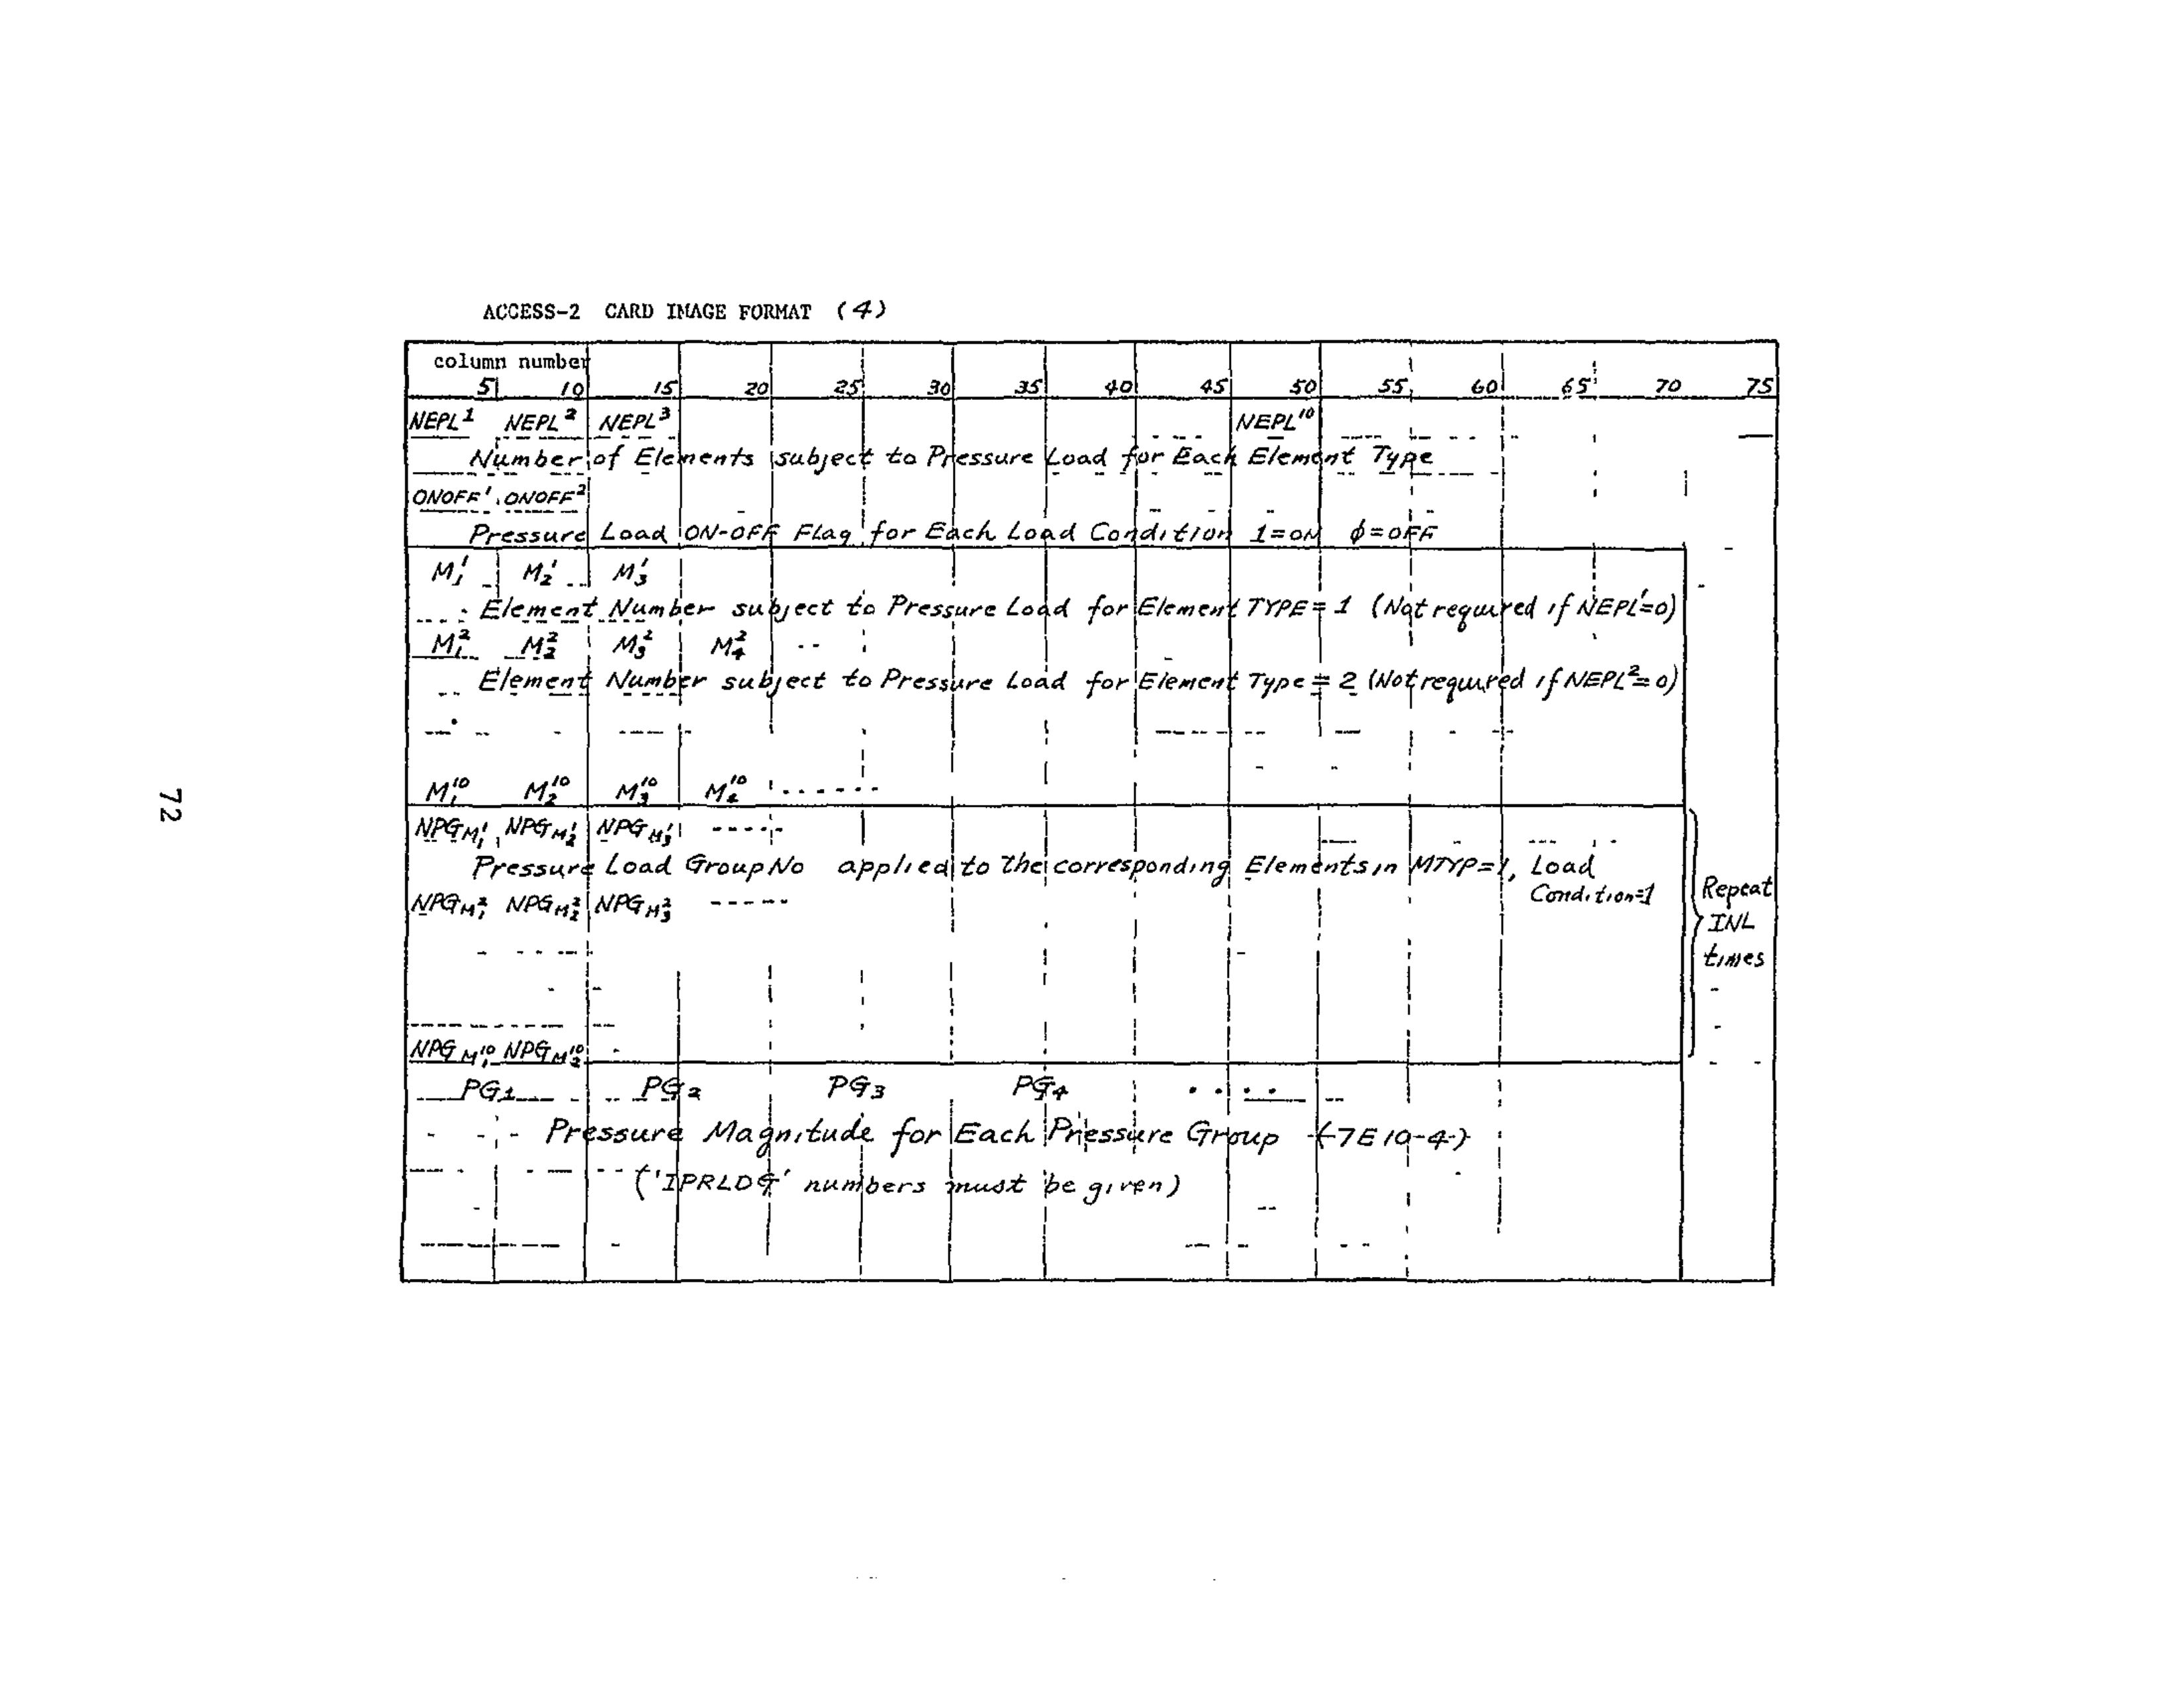 ACCESS-2 CARD IMAGE FORMAT (4)
column number
5 10 15 20 25 30 35 40 45 50 55 60 65 70 75
NEPL¹ NEPL² NEPL³ NEPL¹⁰
Number of Elements subject to Pressure Load for Each Element Type
ONOFF¹ ONOFF²
Pressure Load ON-OFF Flag for Each Load Condition 1=ON ϕ=OFF
M₁¹ M₂¹ M₃¹
Element Number subject to Pressure Load for Element TYPE=1 (Not required if NEPL¹=0)
M₁² M₂² M₃² M₄² --
Element Number subject to Pressure Load for Element Type=2 (Not required if NEPL²=0)
M₁¹⁰ M₂¹⁰ M₃¹⁰ M₄¹⁰ ------
NPG M₁¹ NPG M₂¹ NPG M₃¹ -----
Pressure Load Group No applied to the corresponding Elements in MTYP=1, Load
Condition=1
NPG M₁² NPG M₂² NPG M₃² -----
Repeat
INL
times
NPG M₁¹⁰ NPG M₂¹⁰
PG₁ PG₂ PG₃ PG₄ ....
Pressure Magnitude for Each Pressure Group (7E10-4)
('IPRLDG' numbers must be given)
72